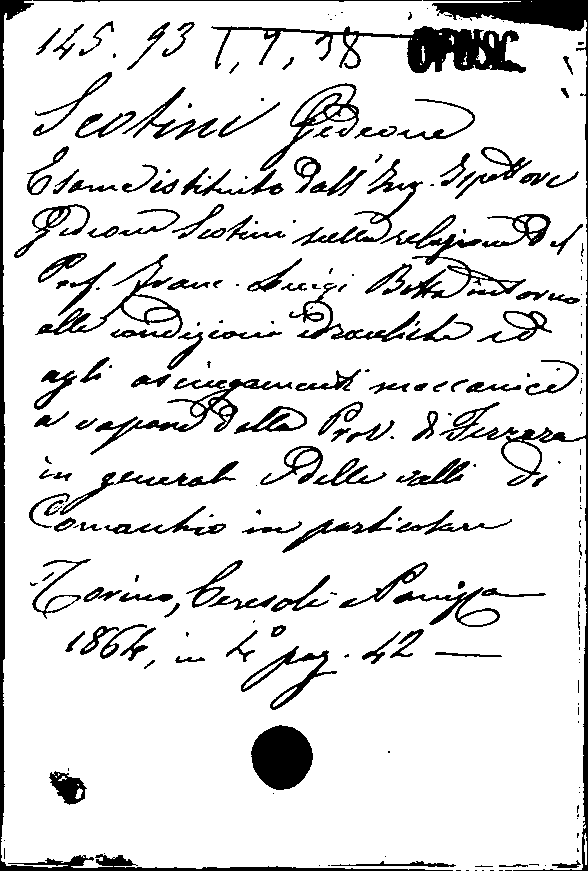 145. 93 1, 7, 38 OPUSC.
Scotini Gedeone
Esame istituito dall'Ing. Ispettore
Gedeone Scotini sulla relazione del
Prof. Franc. Luigi Botta intorno
alle condizioni idrauliche ed
agli asciugamenti meccanici
a vapore della Prov. di Ferrara
in general e delle valli di
Comacchio in particolare
Torino, Ceresole e Panizza
1864, in 4° pag. 42 —